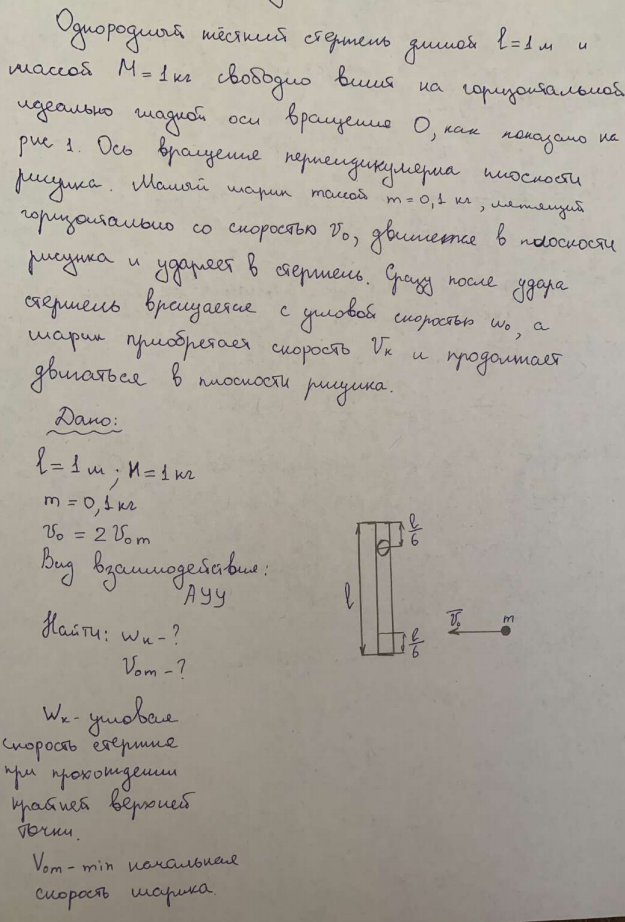 Однородный жёсткий стержень длиной l = 1 м и
массой M = 1 кг свободно висит на горизонтальной
идеально гладкой оси вращение O, как показано на
рис 1. Ось вращение перпендикулярна плоскости
рисунка. Малый шарик массой m = 0,1 кг, летящий
горизонтально со скоростью V₀, движется в плоскости
рисунка и ударяет в стержень. Сразу после удара
стержень вращается с угловой скоростью ω₀, а
шарик приобретает скорость Vк и продолжает
двигаться в плоскости рисунка.
Дано:
l = 1 м ; M = 1 кг
m = 0,1 кг
V₀ = 2 V₀m
Вид взаимодействия:
АУУ
Найти: ωк - ?
V₀m - ?
ωк - угловая
скорость стержня
при прохождении
крайней верхней
точки.
V₀m - min начальная
скорость шарика.
l/6
O
l
l/6
V̅₀
m